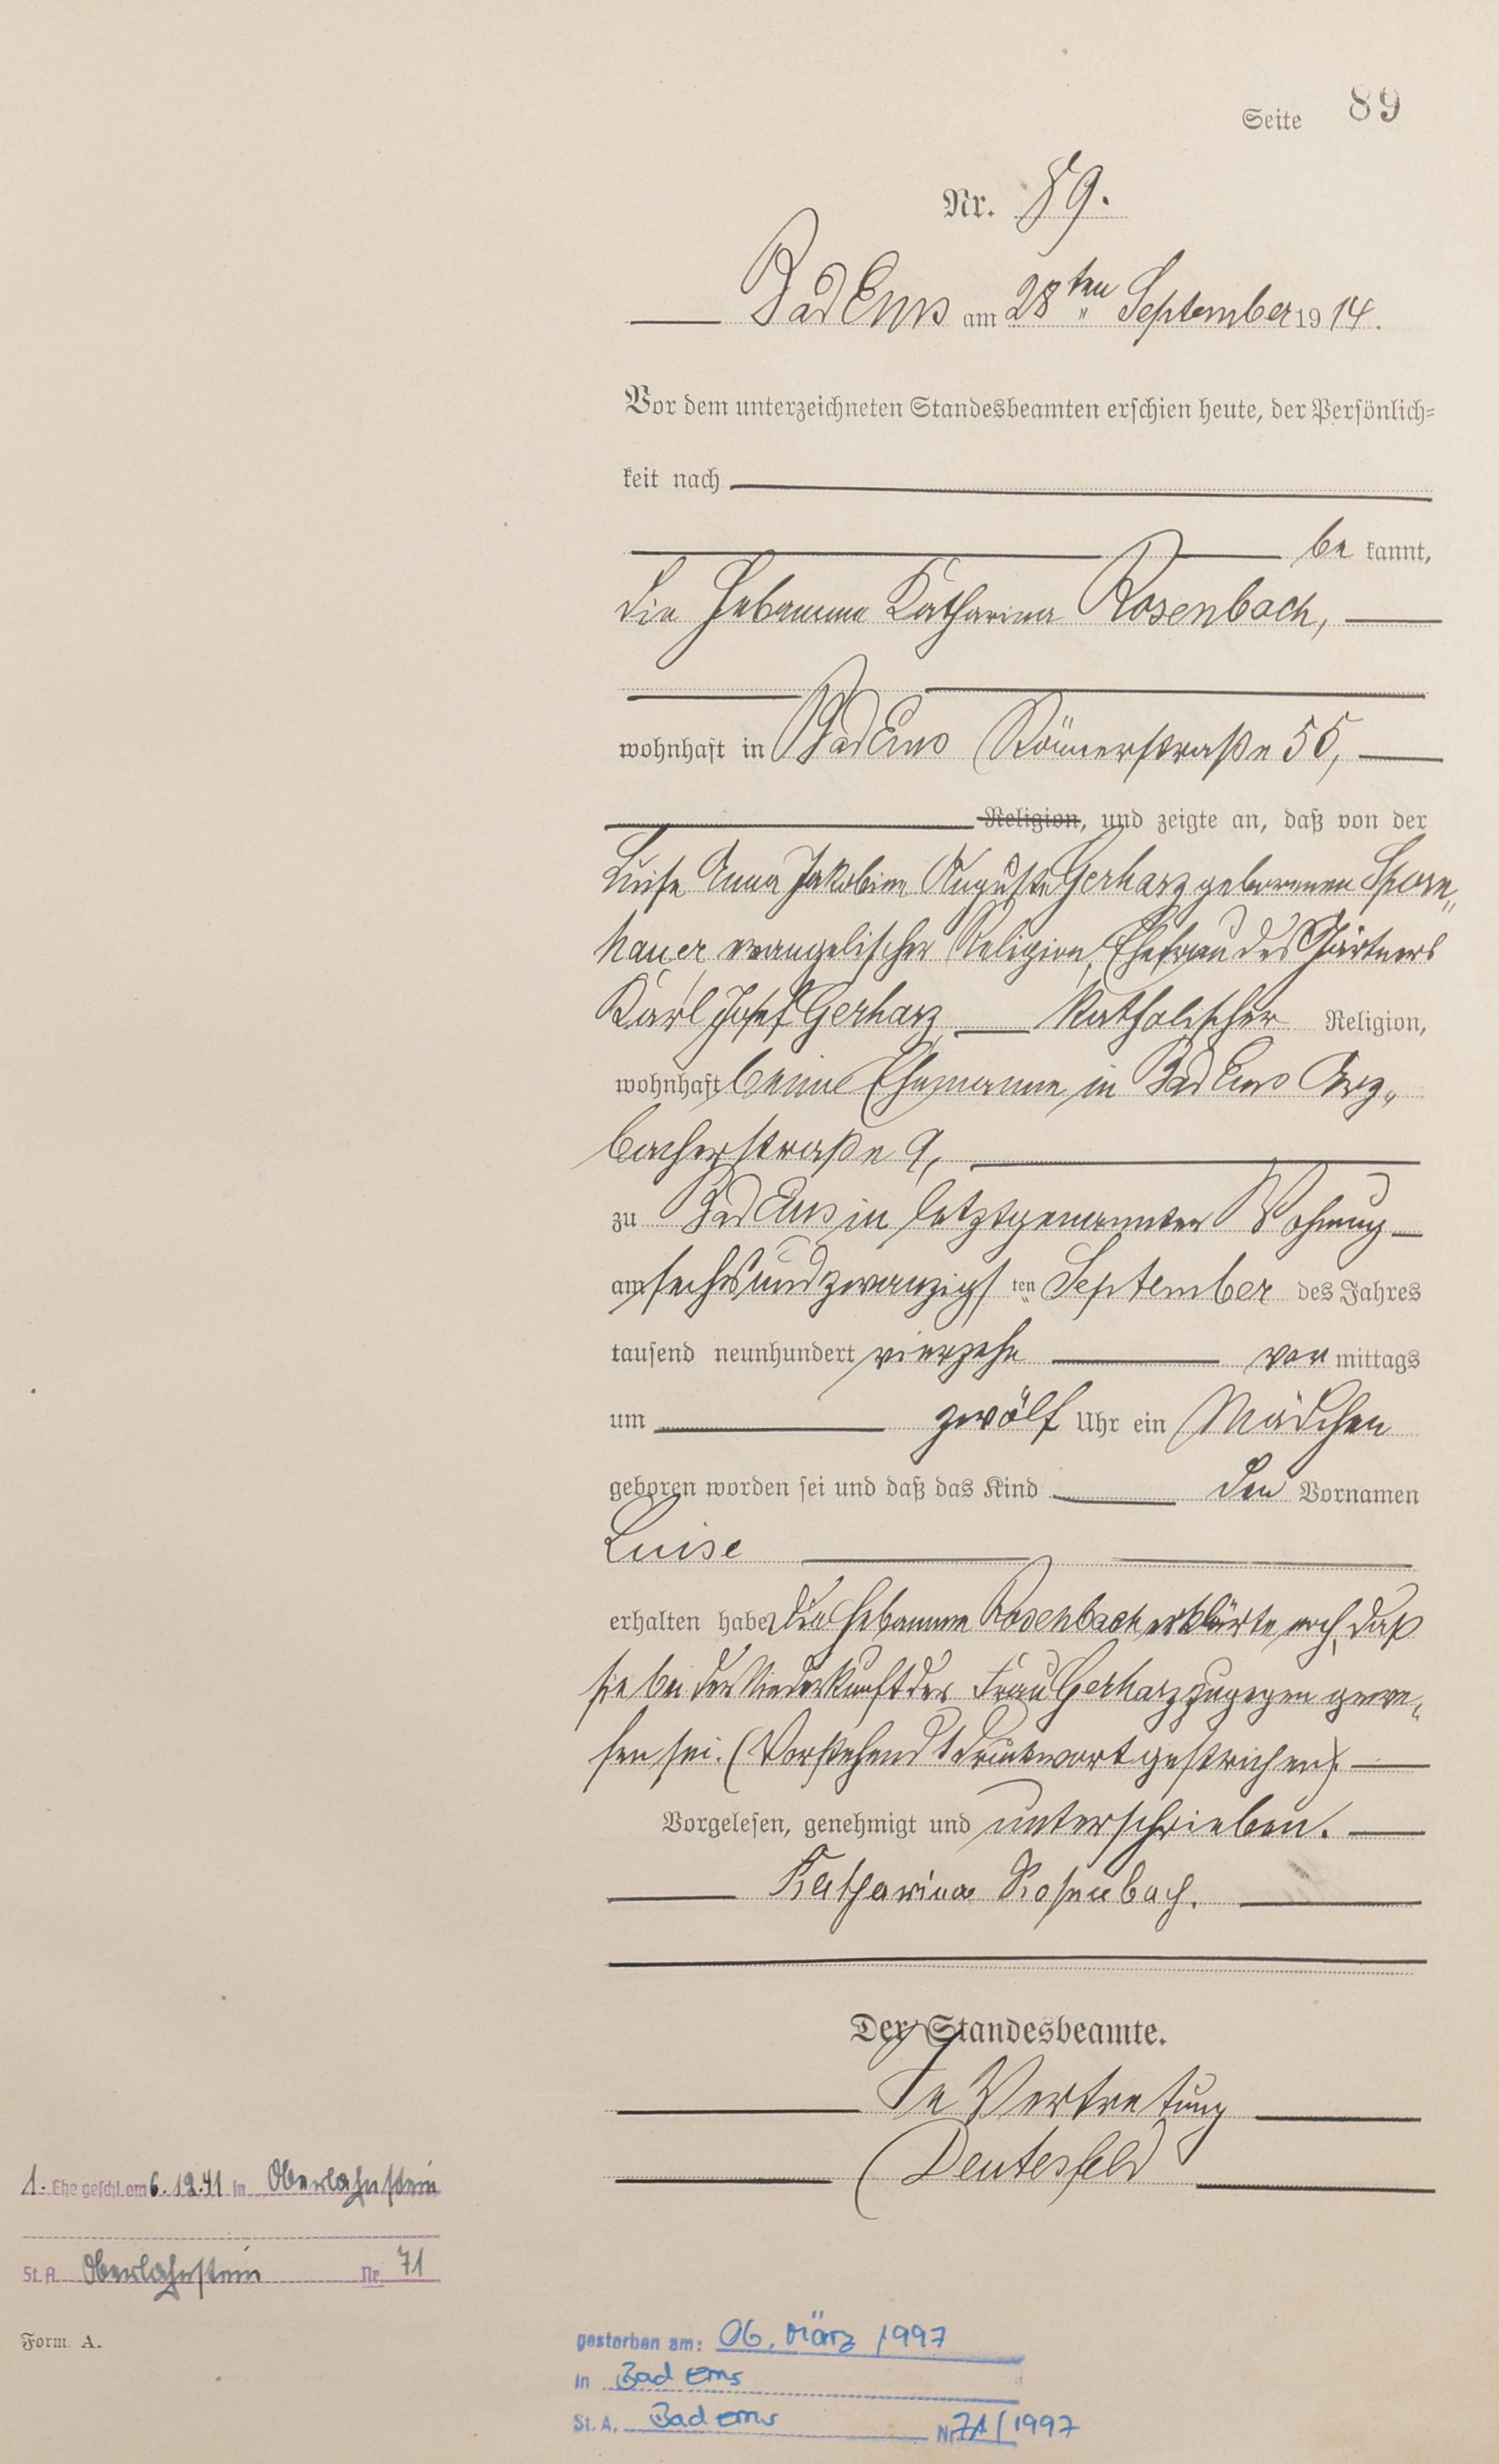 Seite 89
Nr. 89.
Bad Ems am 28ten September 1914.
Vor dem unterzeichneten Standesbeamten erschien heute, der Persönlich-
keit nach
be kannt,
die Hebamme Katharina Rosenbach,
wohnhaft in Bad Ems Römerstraße 55,
Religion, und zeigte an, daß von der
Luise Anna Jakobine Auguste Gerharz geborenen Sporn-
hauer, evangelischer Religion, Ehefrau des Gärtners
Karl Josef Gerharz katholischer Religion,
wohnhaft beim Ehemanne in Bad Ems Arz-
bacherstraße 9,
zu Bad Ems in letztgenannter Wohnung
am sechsundzwanzigsten September des Jahres
tausend neunhundert vierzehn vormittags
um zwölf Uhr ein Mädchen
geboren worden sei und daß das Kind den Vornamen
Luise
erhalten habe. Die Hebamme Rosenbach erklärte noch, daß
sie bei der Niederkunft der Frau Gerharz zugegen gewe-
sen sei. (Vorstehend 1 Druckwort gestrichen).
Vorgelesen, genehmigt und unterschrieben.
Katharina Rosenbach.
Der Standesbeamte.
In Vertretung
Deutesfeld
1. Ehe geschl. am 6.12.41 in Oberlahnstein
St.A. Oberlahnstein Nr. 71
Form. A.
gestorben am: 06. März 1997
in Bad Ems
St. A. Bad Ems Nr. 71/1997